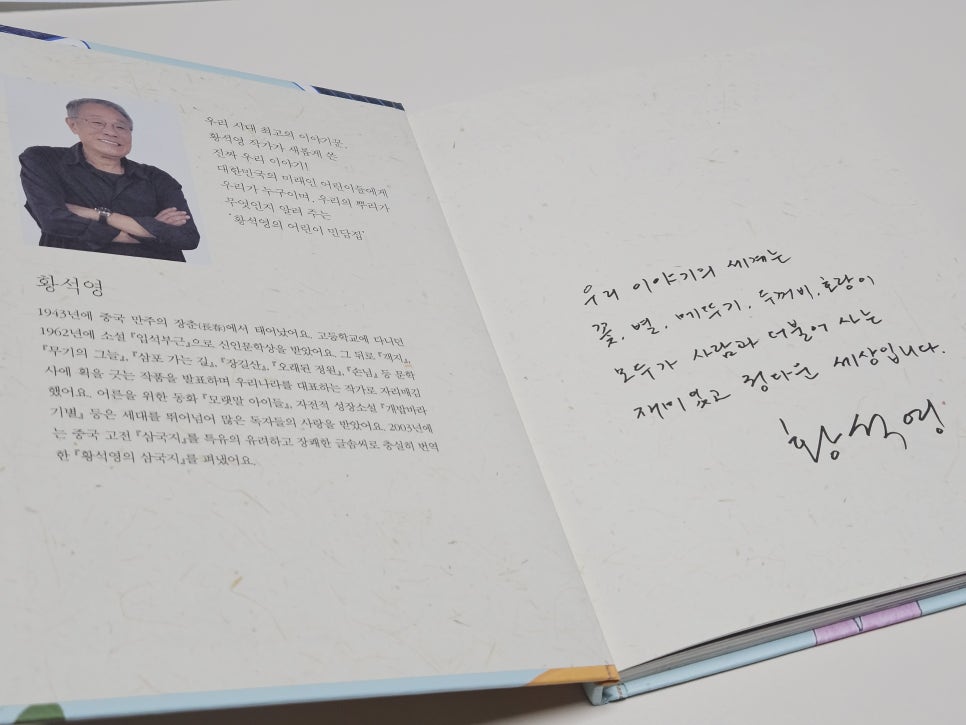 우리 시대 최고의 이야기꾼,
황석영 작가가 새롭게 쓴
진짜 우리 이야기!
대한민국의 미래인 어린이들에게
우리가 누구이며, 우리의 뿌리가
무엇인지 알려 주는
'황석영의 어린이 민담집'
황석영
1943년에 중국 만주의 장춘(長春)에서 태어났어요. 고등학교에 다니던
1962년에 소설 『입석부근』으로 신인문학상을 받았어요. 그 뒤로 『객지』,
『무기의 그늘』, 『삼포 가는 길』, 『장길산』, 『오래된 정원』, 『손님』 등 문학
사에 획을 긋는 작품을 발표하며 우리나라를 대표하는 작가로 자리매김
했어요. 어른을 위한 동화 『모랫말 아이들』, 자전적 성장소설 『개밥바라
기별』 등은 세대를 뛰어넘어 많은 독자들의 사랑을 받았어요. 2003년에
는 중국 고전 『삼국지』를 특유의 유려하고 장쾌한 글솜씨로 충실히 번역
한 『황석영의 삼국지』를 펴냈어요.
우리 이야기의 세계는
꽃, 별, 메뚜기, 두꺼비, 호랑이
모두가 사람과 더불어 사는
재미있고 정다운 세상입니다.
황석영